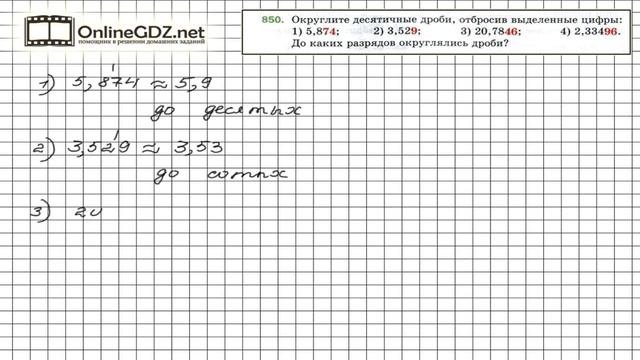 OnlineGDZ.net
помощник в решении домашних заданий
850. Округлите десятичные дроби, отбросив выделенные цифры:
1) 5,874; 2) 3,529; 3) 20,7846; 4) 2,33496.
До каких разрядов округлялись дроби?
1) 5,874 ≈ 5,9
до десятых
2) 3,529 ≈ 3,53
до сотых
3) 20